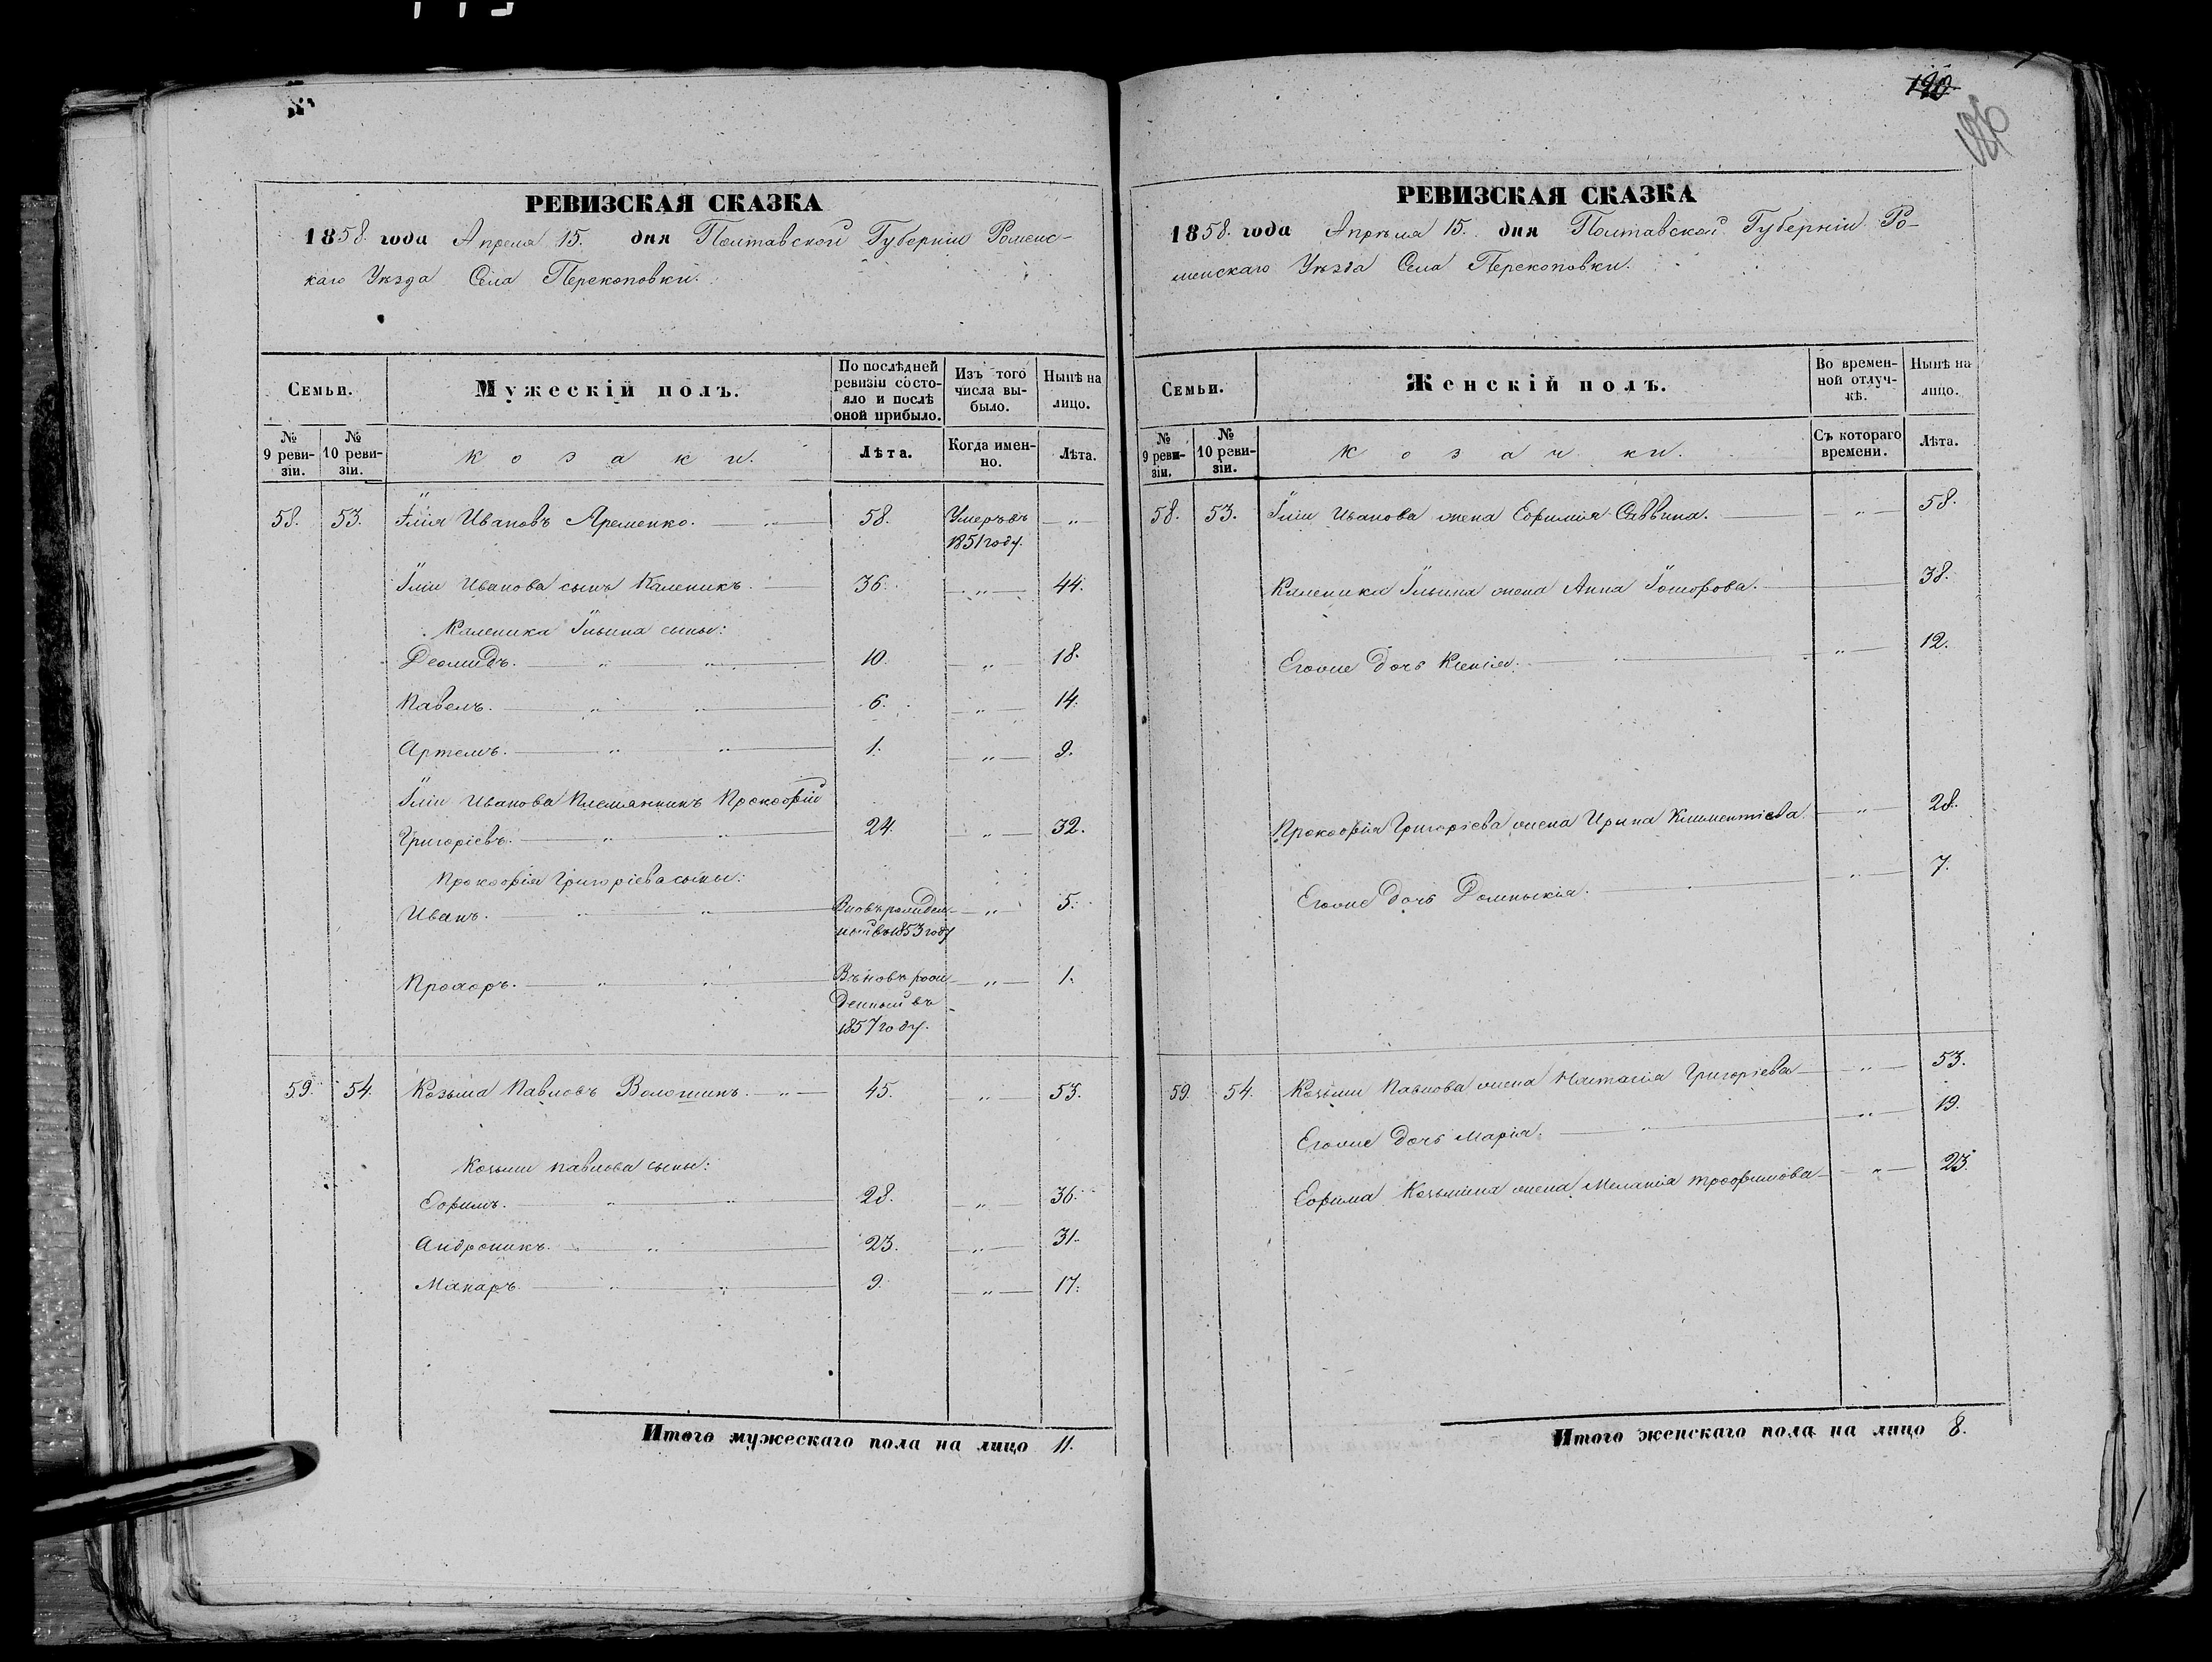 РЕВИЗСКАЯ СКАЗКА
1858. года Апреля 15. дня Полтавской Губерніи Роменс-
каго Уѣзда Села Перекоповки.
Семьи.
Мужескій полъ.
По послѣдней ревизіи состо-яло и послѣ оной прибыло.
Изъ того числа вы-было.
Нынѣ на лицо.
№ 9 реви-зіи.
№ 10 реви-зіи.
Козаки.
Лѣта.
Когда имен-но.
Лѣта.
58. 53. Илія Ивановъ Яременко. 58. Умеръ въ „
1851 году.
Иліи Иванова сынъ Каленикъ. 36. „ 44.
Каленика Ильина сыны:
Деомидъ. „ „ 10. „ 18.
Павелъ. „ „ 6. „ 14.
Артемъ. „ „ 1. „ 9.
Иліи Иванова племянникъ Прокофій
Григоріевъ. „ „ 24. „ 32.
Прокофія Григоріева сыны:
Иванъ. „ „ Вновь рожден- „ 5.
ной въ 1853 году
Прохоръ. „ „ Въновь рож- „ 1.
денный въ
1857 году.
59. 54. Козьма Павловъ Волошинъ. „ 45. „ 53.
Козьми Павлова сыны:
Ефимъ. „ „ 28. „ 36.
Андроникъ. „ „ 23. „ 31.
Макаръ. „ „ 9. „ 17.
Итого мужескаго пола на лицо 11.
190
РЕВИЗСКАЯ СКАЗКА
1858. года Апрѣля 15. дня Полтавской Губерніи Ро-
менскаго Уѣзда Села Перекоповки.
Семьи.
Женскій полъ.
Во времен-ной отлуч-кѣ.
Нынѣ на лицо.
№ 9 реви-зіи.
№ 10 реви-зіи.
Козачки.
Съ котораго времени.
Лѣта.
58. 53. Иліи Иванова жена Ефимія Саввина. „ 58.
Каленика Ильина жена Анна 38.
Егоже дочь Ксенія. „ „ 12.
Прокофія Григоріева жена Ирина Климентіева „ 28.
Егоже дочь Домникія. „ „ 7.
59. 54. Козьми Павлова жена Настасія Григоріева „ 53.
Егоже дочь Марія. „ „ 19.
Ефима Козьмина жена Меланія Трофимова „ 23.
Итого женскаго пола на лицо 8.